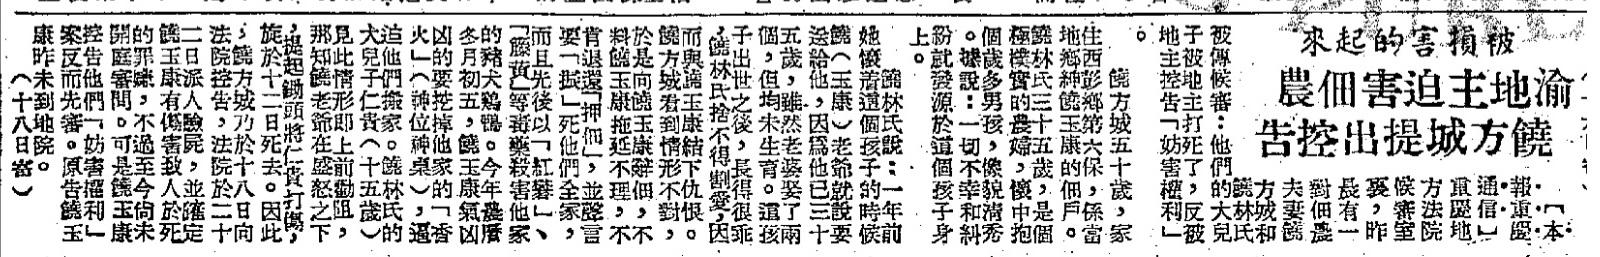 被損害的起來
渝地主迫害佃農
饒方城提出控告
【本
報重慶
通信】
重慶地
方法院
候審室
裏，昨
晨有一
對佃農
夫妻饒
方城和
饒林氏
被傳候審：他們的大兒
子被地主打死了，反被
地主控告「妨害權利」
。
饒方城五十歲，家
住西彭鄉第六保，係當
地鄉紳饒玉康的佃戶。
饒林氏三十五歲，是個
極樸實的農婦，懷中抱
個歲多男孩，像貌清秀
。據說：一切不幸和糾
紛就發源於這個孩子身
上。
饒林氏說：一年前
她懷着這個孩子的時候
饒（玉康）老爺就說要
送給他，因爲他已三十
五歲，雖然老婆娶了兩
個，但均未生育。這孩
子出世之後，長得很乖
，饒林氏捨不得割愛，因
而與饒玉康結下仇恨。
饒方城看到情形不對，
於是向饒玉康辭佃，不
料饒玉康拖延不理，不
肯退還「押佃」，並聲言
要「振」死他們全家，
而且先後以「紅礬」、
「籐黃」等毒藥殺害他家
的豬犬鷄鴨。今年農曆
冬月初五，饒玉康氣凶
凶的要挖掉他家的「香
火」（神位神桌），逼
迫他們搬家。饒林氏的
大兒子仁貴（十五歲）
見此情形即上前勸阻，
那知饒老爺在盛怒之下
，提起鋤頭將仁貴打傷，
旋於十二日死去。因此
，饒方城乃於十八日向
法院控告，法院於二十
二日派人驗屍，並確定
饒玉康有傷害致人於死
的罪嫌，不過至今尙未
開庭審問。可是饒玉康
控告他們「妨害權利」
案反而先審。原告饒玉
康昨未到地院。
（十八日寄）